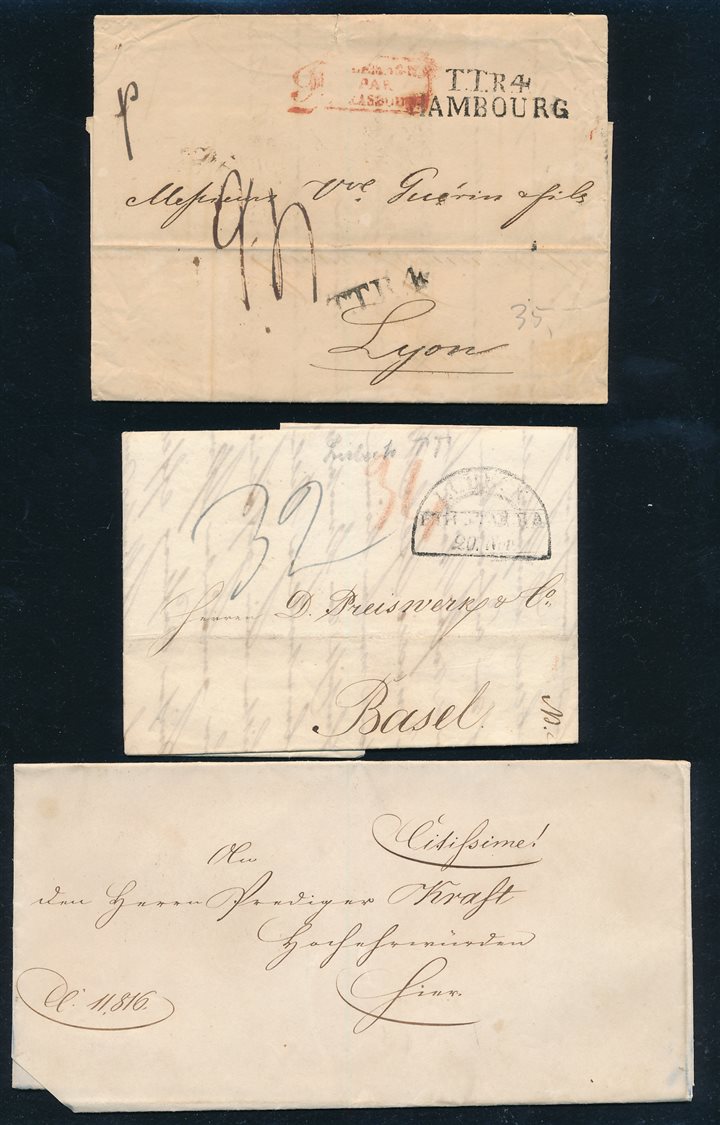 P
PAR
T.T.R.4
HAMBOURG
Messieurs Vve. Guérin & fils
T.T.R.4
35,-
Lyon
32
Herren D. Preiswerk & Co.
Basel.
Citissime!
An
den Herrn Prediger Kraft
Hochehrwürden
hier.
11,816.